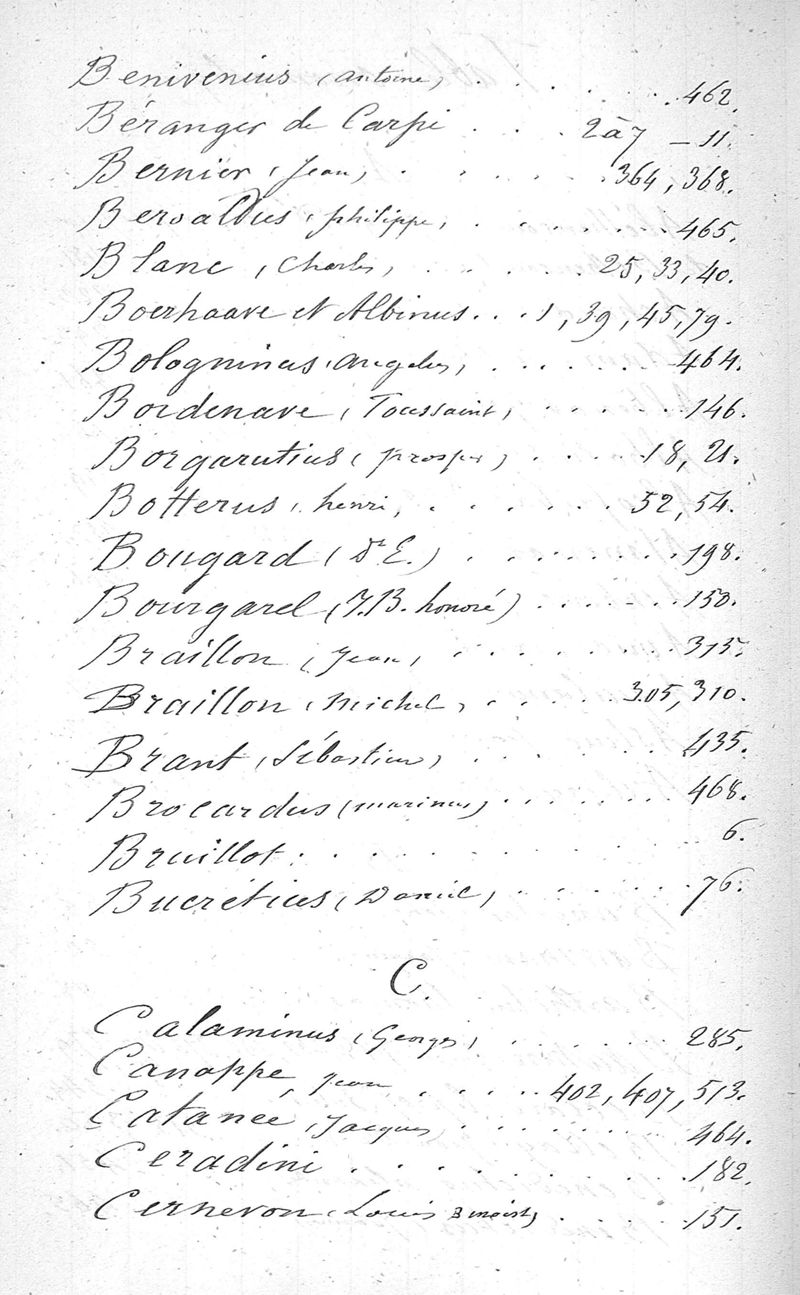 Benivenius (Antoine) . . . . . . . 462.
Béranger de Carpi . . . . 2 à 7 — 11.
Bernier (Jean) . . . . . . 364, 368.
Beroaldus (philippe) . . . . . . 465.
Blanc (Charles) . . . . . . 25, 33, 40.
Boerhaave et Albinus . . . 1, 39, 45, 79.
Bologninus (Angelus) . . . . . . 464.
Bordenave (Toussaint) . . . . . 146.
Borgarutius (prosper) . . . . . 18, 21.
Botterus (henri) . . . . . . 52, 54.
Bougard (Dr E.) . . . . . . . . 198.
Bourgarel (J. B. honoré) . . . . . . 150.
Braillon (Jean) . . . . . . . . 315.
Braillon (Michel) . . . . . . 305, 310.
Brant (Sébastien) . . . . . . . 435.
Brocardus (marinus) . . . . . . . 468.
Bruillot . . . . . . . . . 6.
Bucrétius (Daniel) . . . . . . . 76.
C.
Calaminus (Georges) . . . . . . . 285.
Canappe, Jean . . . . . 402, 407, 513.
Catanée (Jacques) . . . . . . . 464.
Ceradini . . . . . . . . . 182.
Cernevon (Louis Benoist) . . . . . 151.